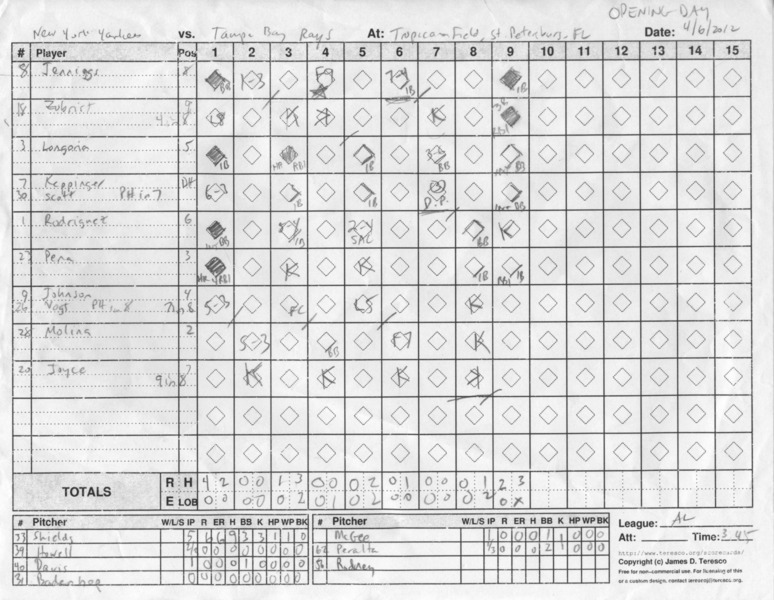 OPENING DAY
New York Yankees vs. Tampa Bay Rays At: Tropicana Field, St Petersburg, FL Date: 4/6/2012
# Player Pos 1 2 3 4 5 6 7 8 9 10 11 12 13 14 15
8 Jennings 8 BB K-3 F9 1B 1B
18 Zobrist 9
4 in 8 L8 K K K RBI
3 Longoria 5 1B HR RBI 1B 3-5 BB INT BB
7 Keppinger DH 6-3 1B 1B D.P. INT BB
30 Scott PH in 7
1 Rodriguez 6 INT BB 1B 2-4 SAC BB K
23 Pena 3 HR 4RBI K K 1B RBI 1B
9 Johnson 4 5-3 FC L5 K
26 Vogt PH in 8 7 in 8
28 Molina 2 5-3 BB F7 K
20 Joyce 7 K K K K
9 in 8
TOTALS R H 4 2 0 0 1 3 0 0 0 2 0 1 0 0 0 1 2 3
E LOB 0 0 0 0 0 2 0 1 0 2 0 0 0 0 0 2 0 x
# Pitcher W/L/S IP R ER H BB K HP WP BK # Pitcher W/L/S IP R ER H BB K HP WP BK
33 Shields 5 6 6 9 3 3 1 1 0 McGee 1 0 0 0 1 1 0 0 0
39 Howell 0 0 0 0 0 0 0 0 62 Peralta 1/3 0 0 0 2 1 0 0 0
40 Davis 1 0 0 0 1 0 0 0 0 56 Rodney
31 Badenhop 0 0 0 0 0 0 0 0
League: AL
Att: Time: 3:45
http://www.teresco.org/scorecards/
Copyright (c) James D. Teresco
Free for non-commercial use. For licensing of this
or a custom design, contact terescoj@teresco.org.